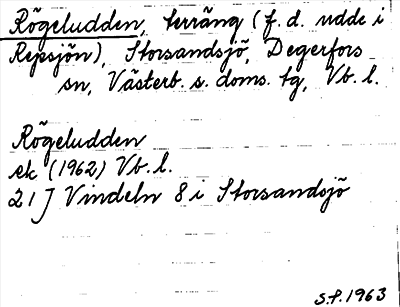 Rögeludden, terräng (f.d. udde i
Repsjön), Storsandsjö, Degerfors
sn, Västerb. s. doms. tg, Vb. l.
Rögeludden
ek (1962) Vb. l.
21J Vindeln 8 i Storsandsjö
S.f. 1963